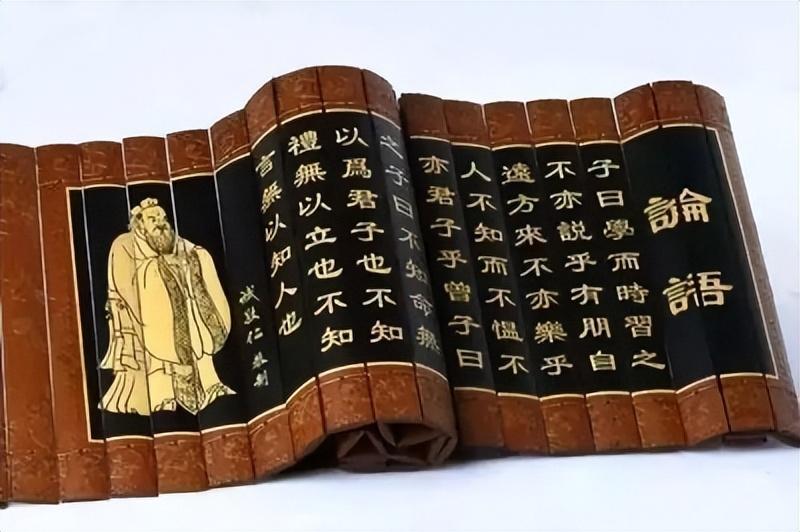 論語
子曰學而時習之
不亦説乎有朋自
遠方來不亦樂乎
人不知而不慍不
亦君子乎曾子曰
之子曰不知命無
以爲君子也不知
禮無以立也不知
言無以知人也